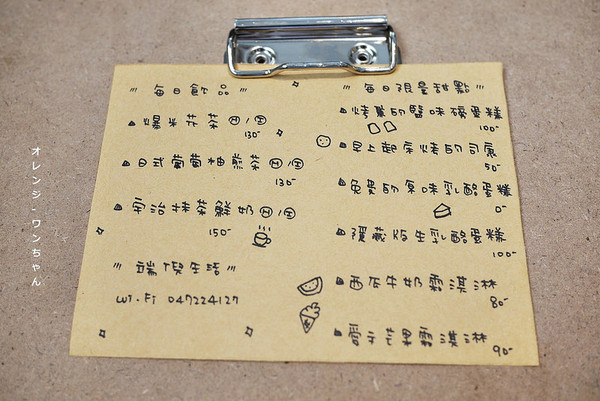 每日飲品
爆米花茶 冰/熱
130-
日式葡萄柚煎茶 冰/熱
130-
宇治抹茶鮮奶 冰/熱
150-
端倪生活
Wi-Fi 047224127
每日限量甜點
烤薰的鹽味磅蛋糕
100-
早上起床烤的司康
50-
免費的原味乳酪蛋糕
0-
隱藏版生乳酪蛋糕
100-
西瓜牛奶霜淇淋
80-
愛文芒果霜淇淋
90-
オレンジ・ワンちゃん